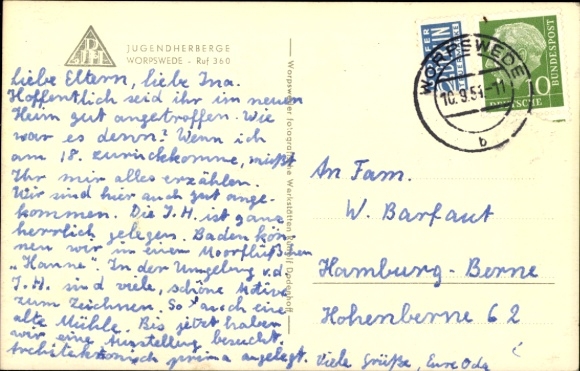 JUGENDHERBERGE
WORPSWEDE - Ruf 360
Liebe Eltern, liebe Ina.
Hoffentlich seid ihr im neuen
Heim gut angetroffen. Wie
war es denn? Wenn ich
am 18. zurückkomme, müßt
Ihr mir alles erzählen.
Wir sind hier auch gut ange-
kommen. Die J.H. ist ganz
herrlich gelegen. Baden kön-
nen wir in einem Moorflüßchen
„Hamme". In der Umgebung v.d.
J.H. sind viele, schöne Motive
zum Zeichnen. So auch eine
alte Mühle. Bis jetzt haben
wir eine Ausstellung besucht.
Architektonisch prima angelegt. Viele Grüße, Eure Oda
Worpsweder fotografische Werkstätten Rudolf Dodenhoff
WORPSWEDE
10.9.54.-11
b
10
DEUTSCHE
BUNDESPOST
An Fam.
W. Barfaut
Hamburg-Berne
Hohenberne 62